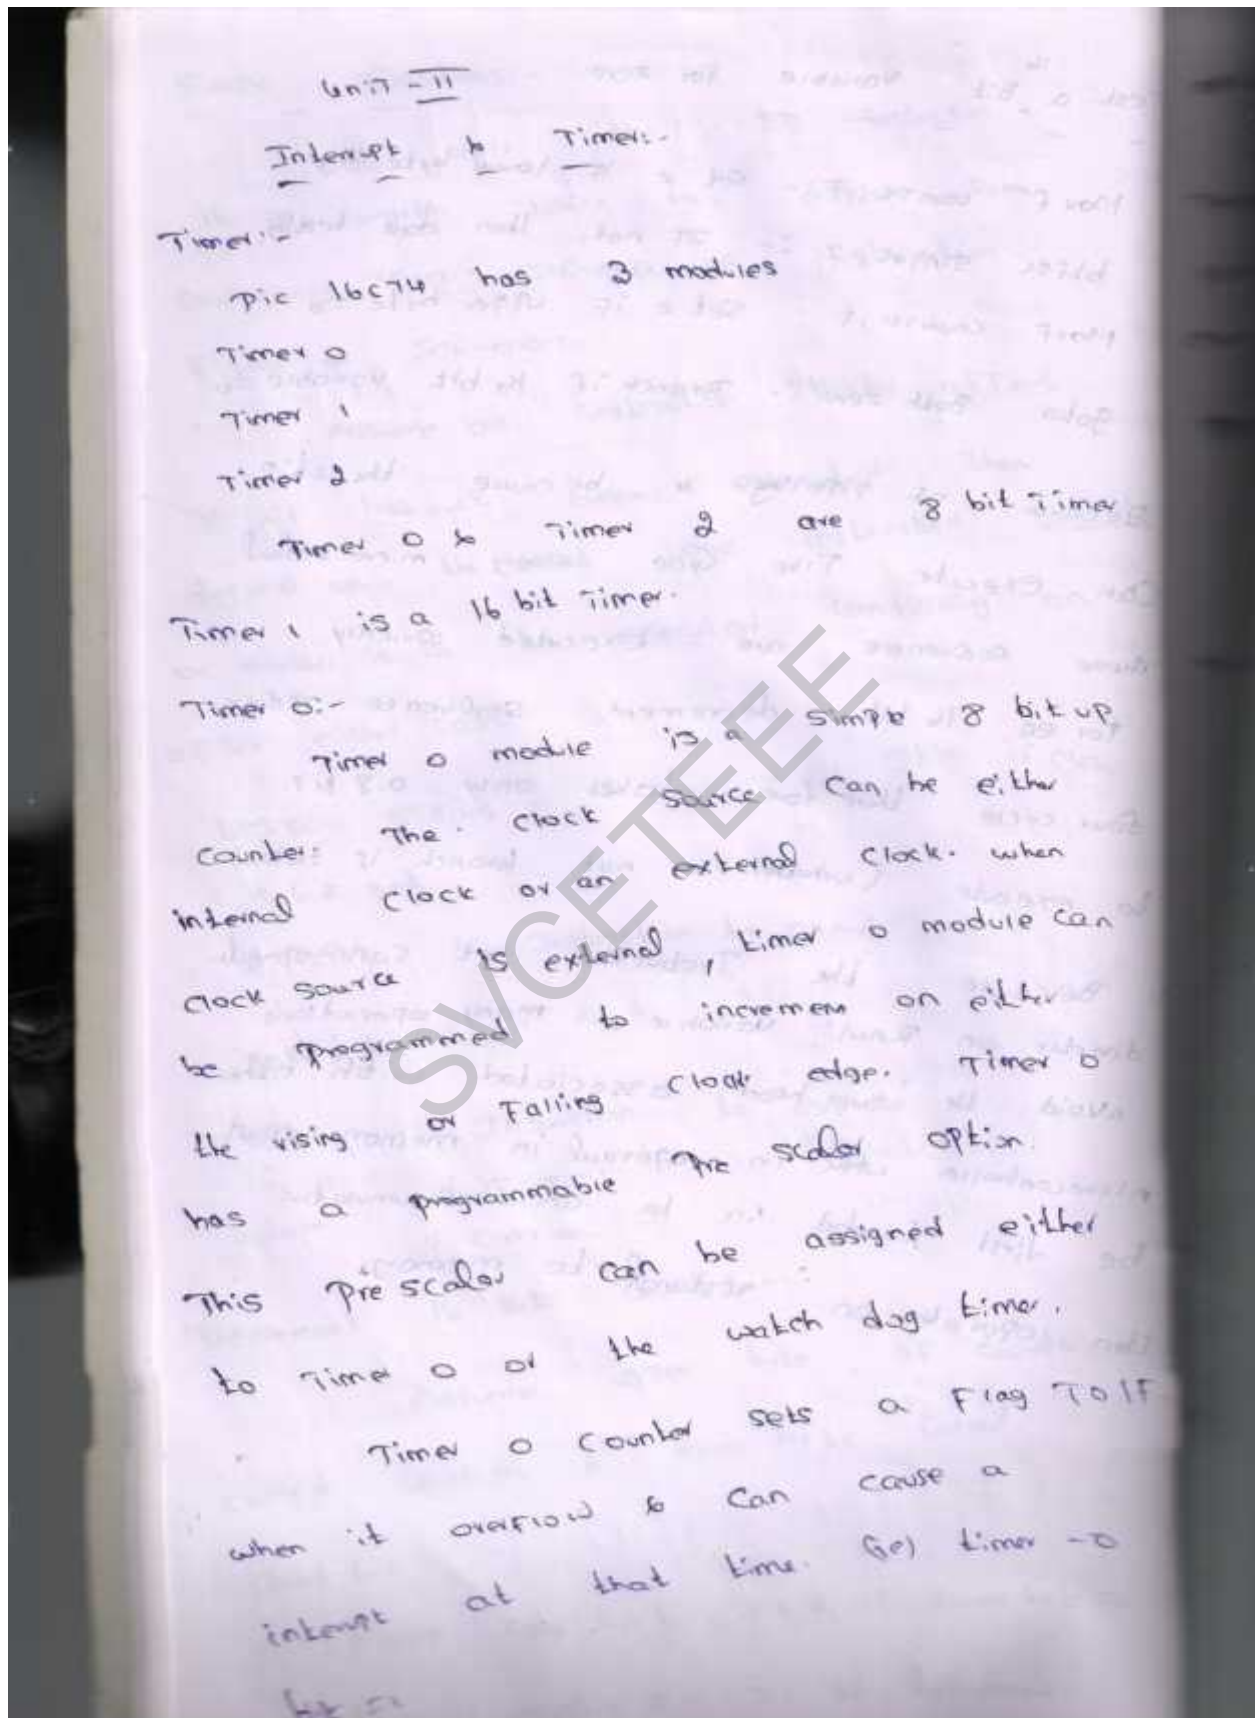 Unit - II
Interrupt & Timer:-
Timer:-
Pic 16C74 has 3 modules
Timer 0
Timer 1
Timer 2
Timer 0 & Timer 2 are 8 bit Timer
Timer 1 is a 16 bit Timer.
Timer 0:-
Timer 0 module is a simple 8 bit up
counter. The clock source can be either
internal clock or an external clock. when
clock source is external, timer 0 module can
be programmed to increment on either
the rising or Falling clock edge. Timer 0
has a programmable Pre scaler option.
This Pre scaler can be assigned either
to Timer 0 or the watch dog timer.
Timer 0 counter sets a Flag T0IF
when it overflow & can cause a
interrupt at that time. (ie) timer - 0
SVCETEEE